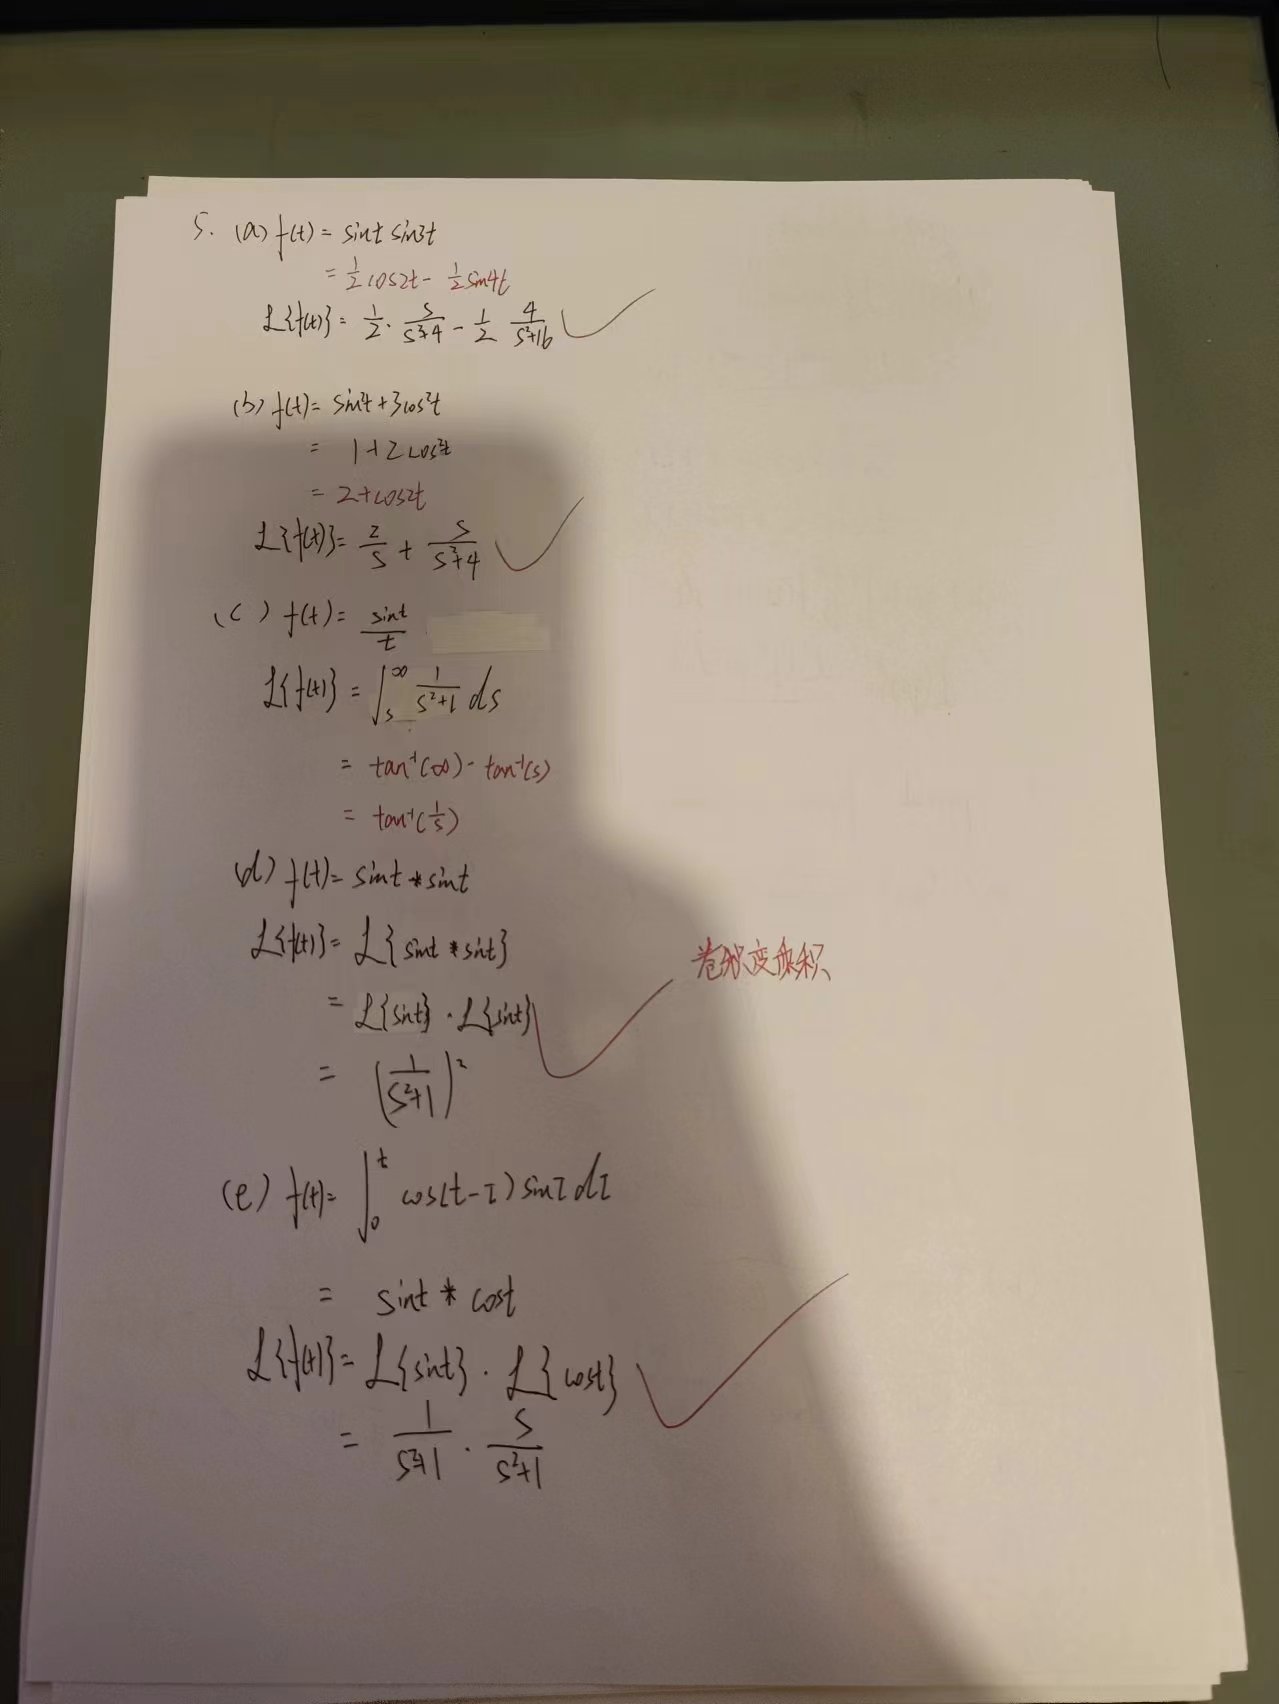 5. (a) f(t) = sint sin3t
= 1/2 cos2t - 1/2 sin4t
ℒ{f(t)} = 1/2 · s/(s²+4) - 1/2 4/(s²+16)
(b) f(t) = sin²t + 3cos²t
= 1+2cos²t
= 2+cos2t
ℒ{f(t)} = 2/s + s/(s²+4)
(c) f(t) = sint/t
ℒ{f(t)} = ∫_s^∞ 1/(s²+1) ds
= tan⁻¹(∞) - tan⁻¹(s)
= tan⁻¹(1/s)
(d) f(t) = sint * sint
ℒ{f(t)} = ℒ{sint * sint}
= ℒ{sint} · ℒ{sint}
卷积变乘积
= (1/(s²+1))²
(e) f(t) = ∫_0^t cos(t-τ) sinτ dτ
= sint * cost
ℒ{f(t)} = ℒ{sint} · ℒ{cost}
= 1/(s²+1) · s/(s²+1)